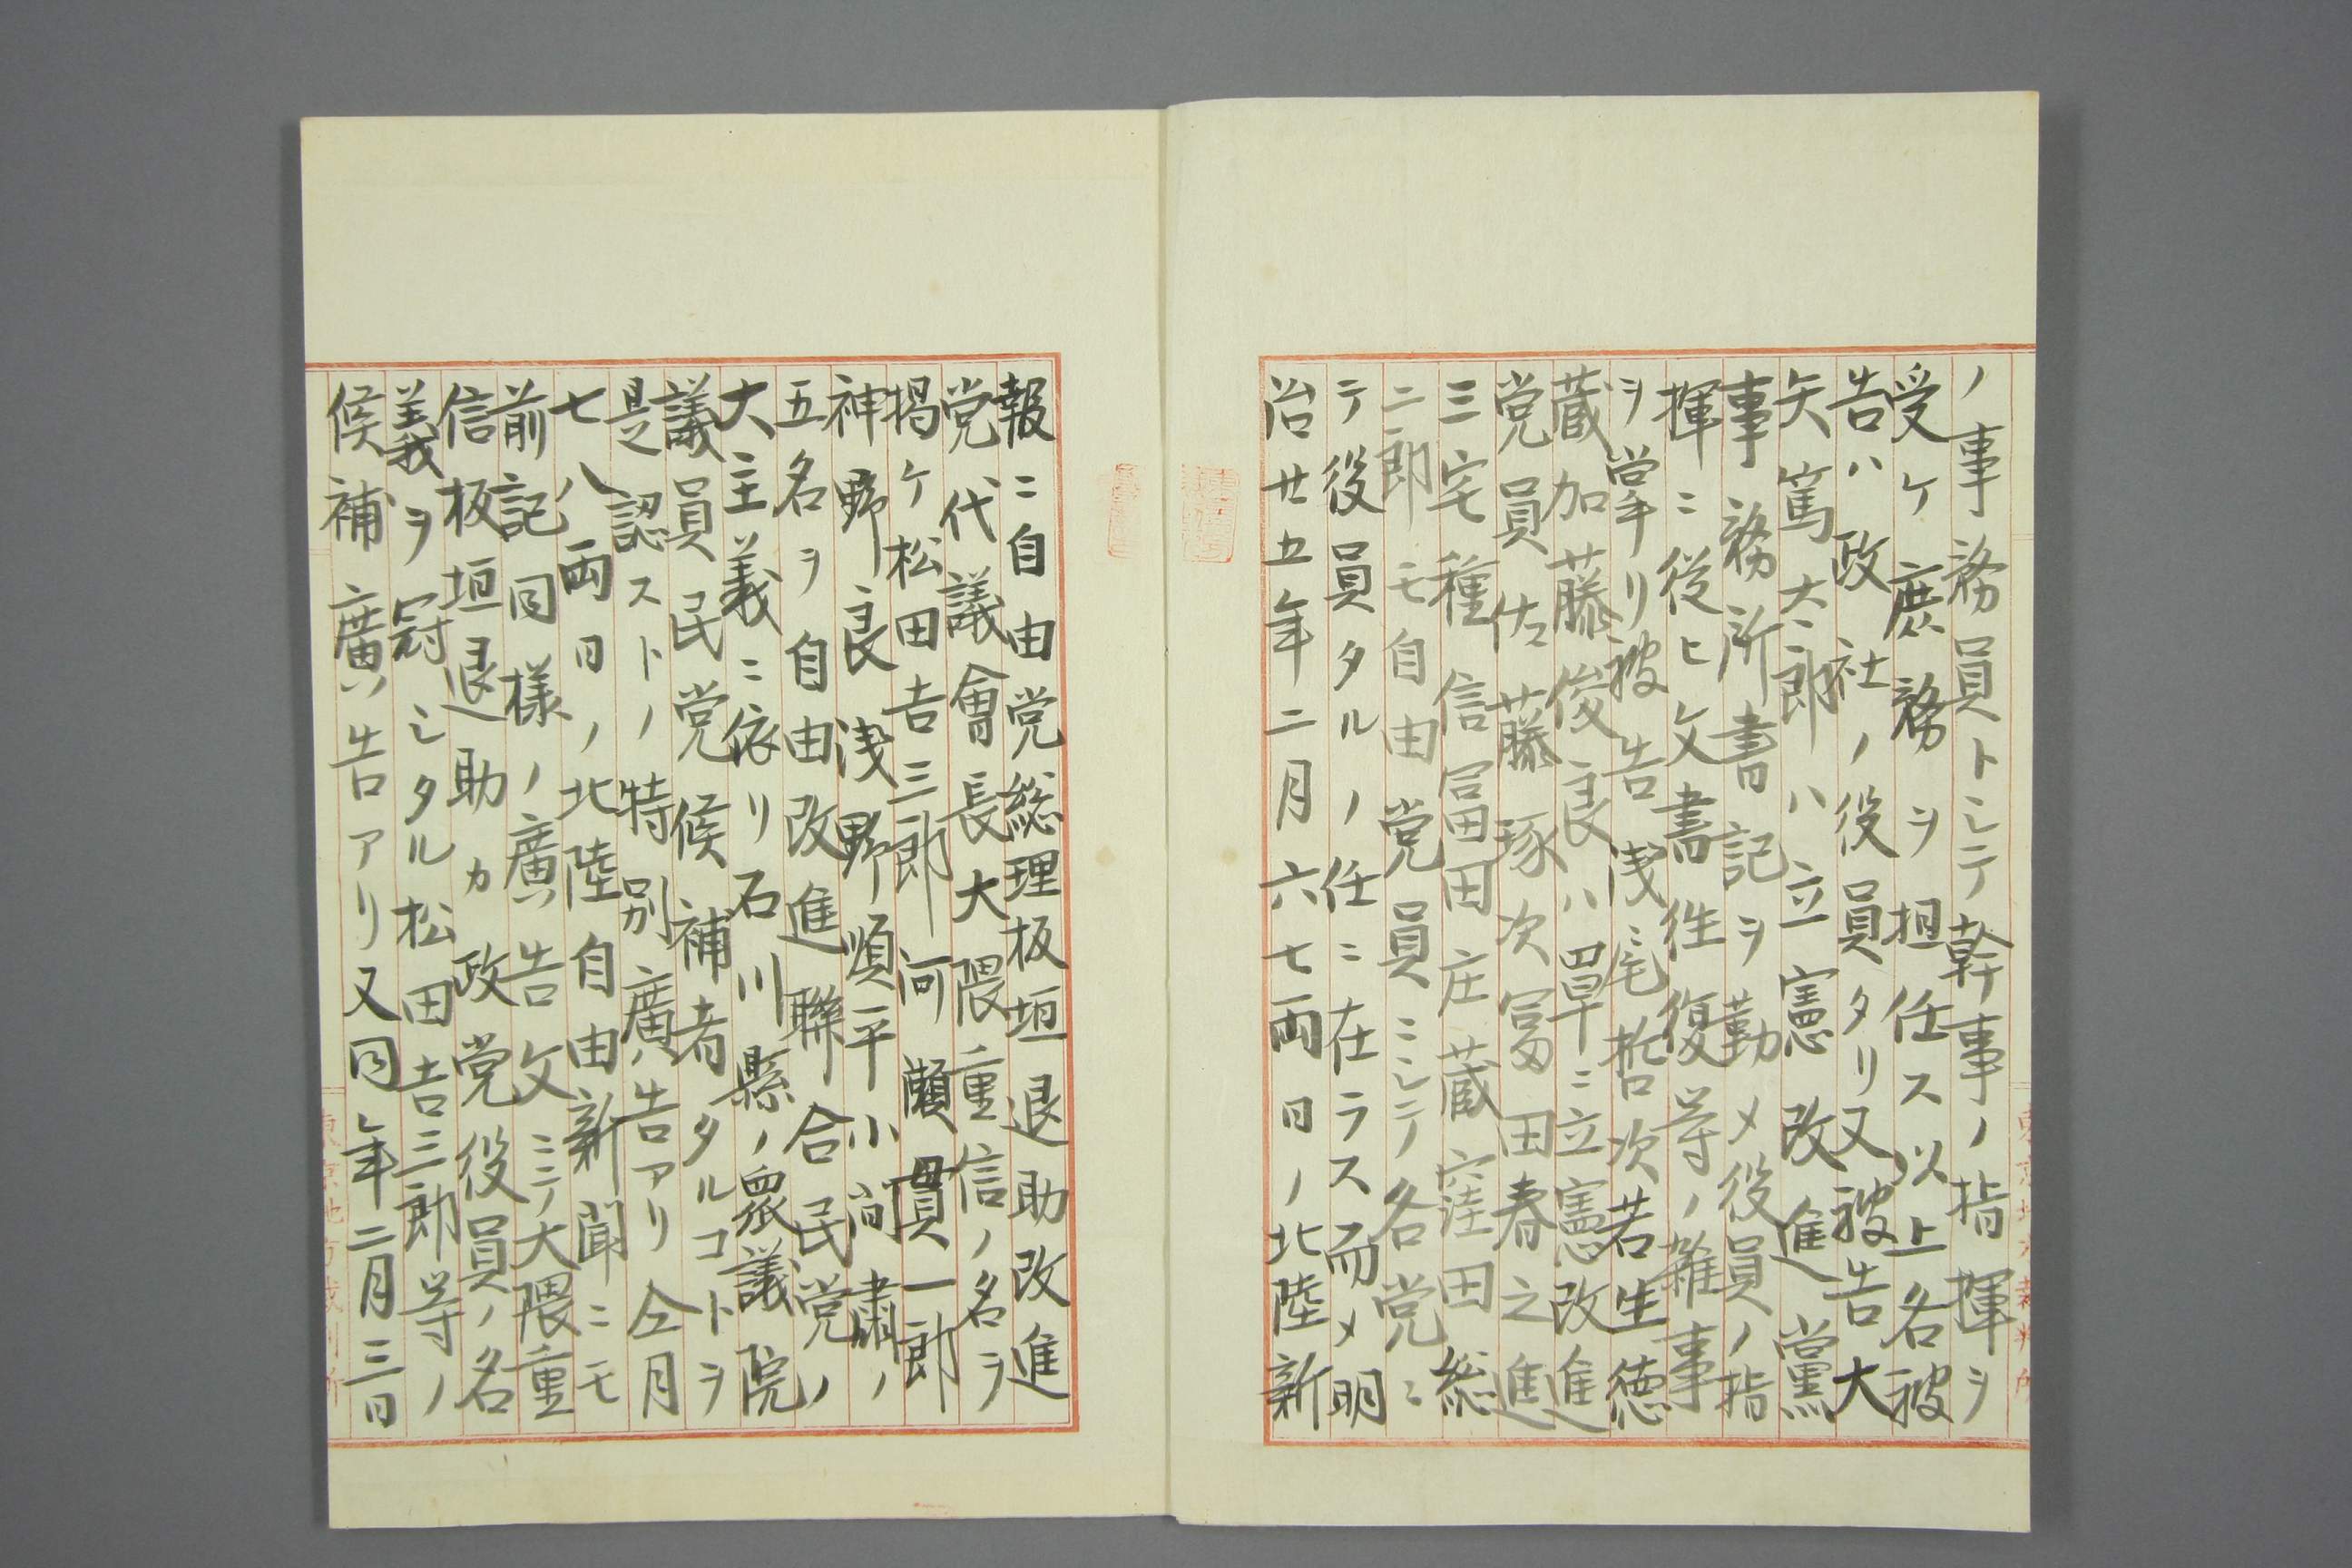 ノ事務員トシテ幹事ノ指揮ヲ
受ケ庶務ヲ担任ス以上各被
告ハ政社ノ役員タリ又被告大
矢篤太郎ハ立憲改進黨
事務所書記ヲ勤メ役員ノ指
揮ニ従ヒ文書往復等ノ雑事
ヲ掌リ被告浅尾哲次若生徳
蔵加藤俊良ハ単ニ立憲改進
党員佐藤琢次富田春之進
三宅種信冨田庄蔵窪田総
二郎モ自由党員ニシテ各党ニ
テ役員タルノ任ニ在ラス而メ明
治廿五年二月六七両日ノ北陸新
報ニ自由党総理板垣退助改進
党代議會長大隈重信ノ名ヲ
掲ケ松田吉三郎河瀬貫一郎
神野良浅野順平小間粛ノ
五名ヲ自由改進聯合民党ノ
大主義ニ依リ石川縣ノ衆議院
議員民党候補者タルコトヲ
是認ストノ特別廣告アリ仝月
七八両日ノ北陸自由新聞ニモ
前記同様ノ廣告文ニテ大隈重
信板垣退助カ政党役員ノ名
義ヲ冠シタル松田吉三郎等ノ
候補廣告アリ又同年二月三日